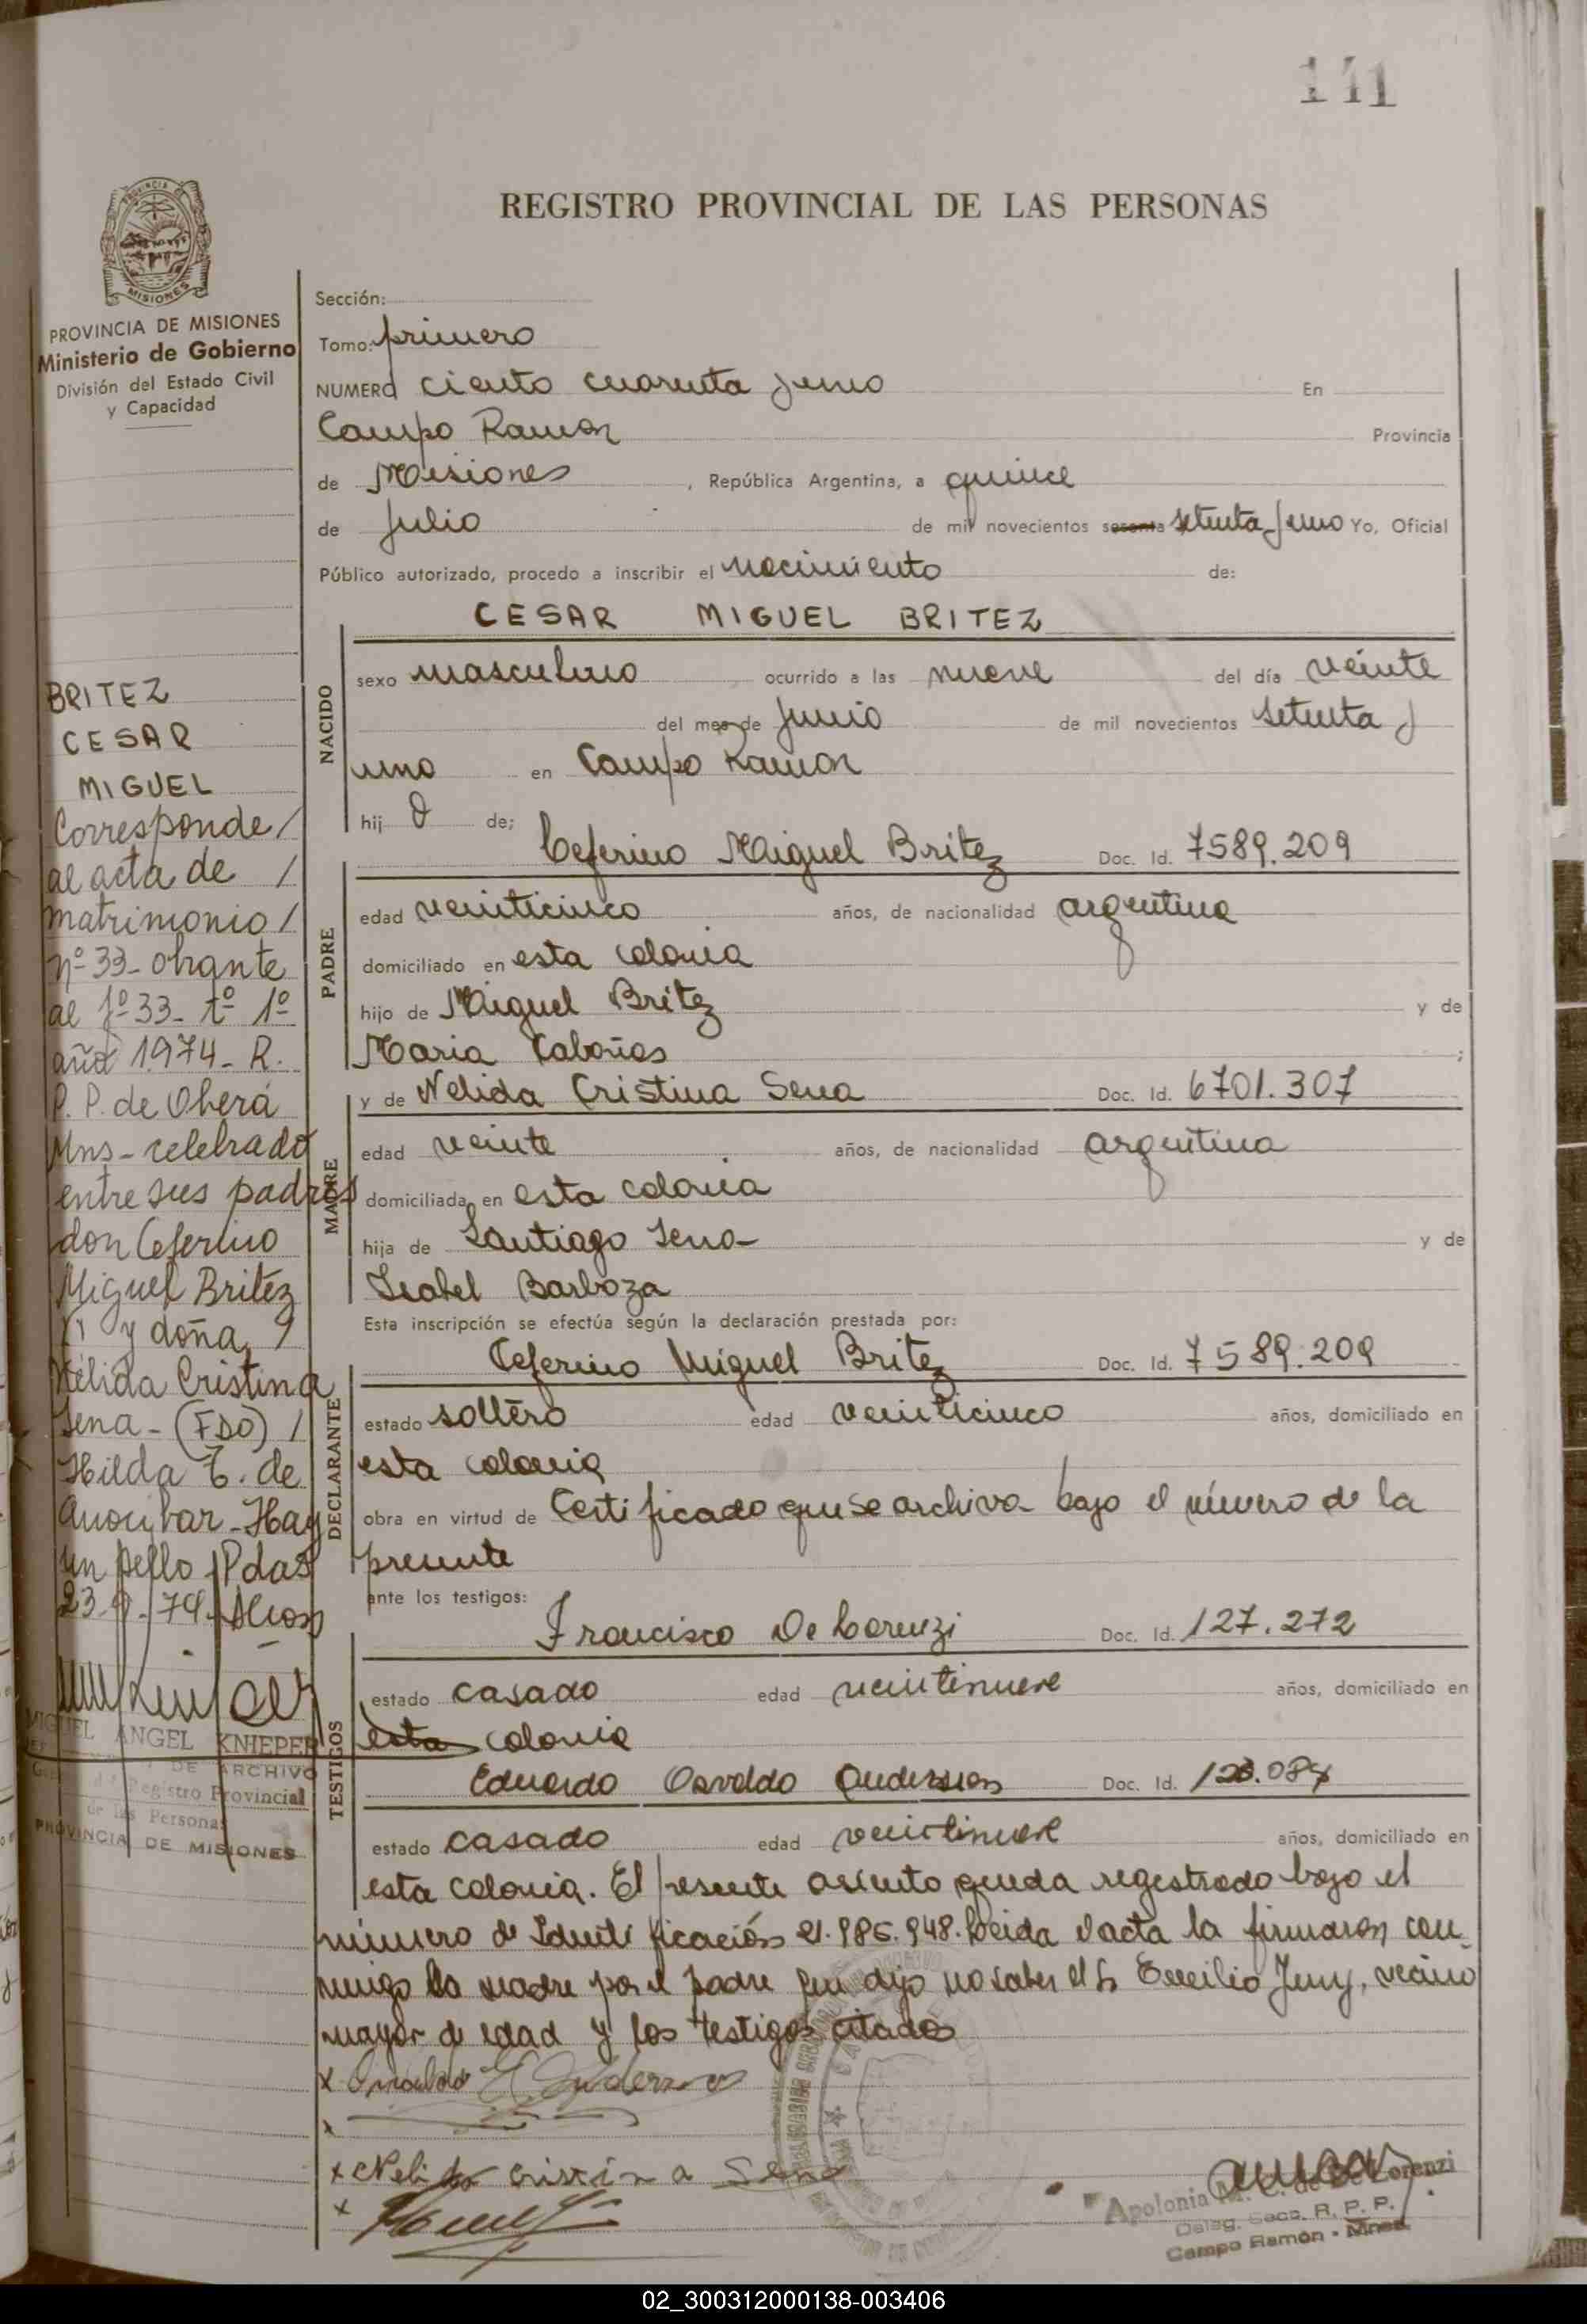 141
REGISTRO PROVINCIAL DE LAS PERSONAS
PROVINCIA DE MISIONES
PROVINCIA DE MISIONES
Ministerio de Gobierno
División del Estado Civil
y Capacidad
Sección:
Tomo: primero
NUMERO ciento cuarenta y uno En
Campo Ramon Provincia
de Misiones, República Argentina, a quince
de Julio de mil novecientos sesenta setenta y uno Yo, Oficial
Público autorizado, procedo a inscribir el nacimiento de:
CESAR MIGUEL BRITEZ
NACIDO
sexo masculino ocurrido a las nueve del día veinte
del mes de junio de mil novecientos setenta y
uno en Campo Ramon
hij o de;
PADRE
Ceferino Miguel Britez Doc. Id. 7589.209
edad veinticinco años, de nacionalidad argentina
domiciliado en esta colonia
hijo de Miguel Britez y de
Maria Cabañas ;
MADRE
y de Nelida Cristina Sena Doc. Id. 6701.307
edad veinte años, de nacionalidad argentina
domiciliada en esta colonia
hija de Santiago Sena y de
Isabel Barboza
Esta inscripción se efectúa según la declaración prestada por:
DECLARANTE
Ceferino Miguel Britez Doc. Id. 7589.209
estado soltero edad veinticinco años, domiciliado en
esta colonia
obra en virtud de Certificado que se archiva bajo el número de la
presente
ante los testigos:
TESTIGOS
Francisco De Lorenzi Doc. Id. 127.272
estado casado edad veintinueve años, domiciliado en
esta colonia
Eduardo Osvaldo Anderson Doc. Id.
estado casado edad veintinueve años, domiciliado en
esta colonia. El presente asiento queda registrado bajo el
número de Identificación 21.986.948. Leida el acta la firmaron con-
migo la madre por el padre que dijo no saber el Sr Cecilio Juny, vecino
mayor de edad y los testigos citados
x Anderson
x Nelida Cristina Sena
x
Apolonia M. C. de De Lorenzi
Deleg. Secc. R. P. P.
Campo Ramón - Mnes.
BRITEZ
CESAR
MIGUEL
Corresponde /
al acta de /
matrimonio /
nº 33- obrante
al fº 33- tº 1º
año 1974- R.
P. P. de Oberá
Mns- celebrado
entre sus padres
don Ceferino
Miguel Britez
y doña
Nélida Cristina
Sena- (FDO) /
Hilda T. de
Anocibar- Hay
un sello- Pdas
MIGUEL ANGEL KNIEPER
DE ARCHIVO
Registro Provincial
de las Personas
PROVINCIA DE MISIONES
02_300312000138-003406